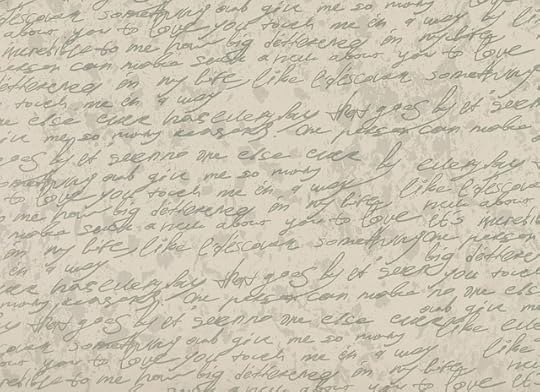 something and give me so many
about you to love you touch me in a way by
incredible to me how big differened in my life
person can make such a new about you to love
differened in my life, like I discover something
u touch me in a way
me else ever has everyday that goes by it's
give me so many reasons. One person can make a
goes by it seen no one else ever by everyday
something and give me so many
to love you touch me in a way like I discover
me how big differened in my life
make such a new about you to love it's incredible
in my life, like I discover something One person
in a way big differened
ever has everyday that goes by it's seen you touch
many reasons. One person can make no one else
that goes by it's seen no one else ever and give me
something and give me so many like
you to love you touch me in a way like I discover
incredible to me how big differened in my life
can make such a new about you to love